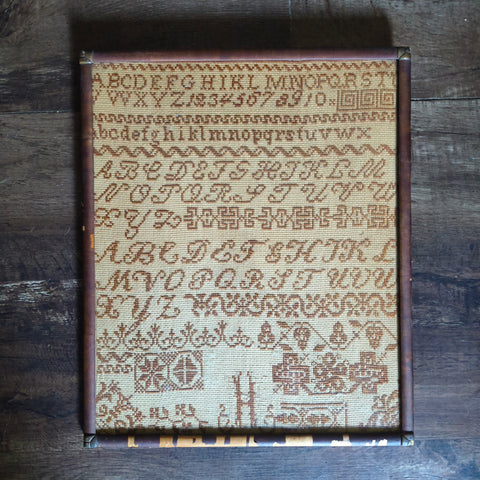 ABCDEFGHIKLMNOPQRST
VWXYZ12345678910
abcdefghiklmnopqrstuvwx
ABCDEFGHIKLM
NOPQRSTUVW
XYZ
ABCDEFGHIKL
MNOPQRSTUVW
XYZ
H